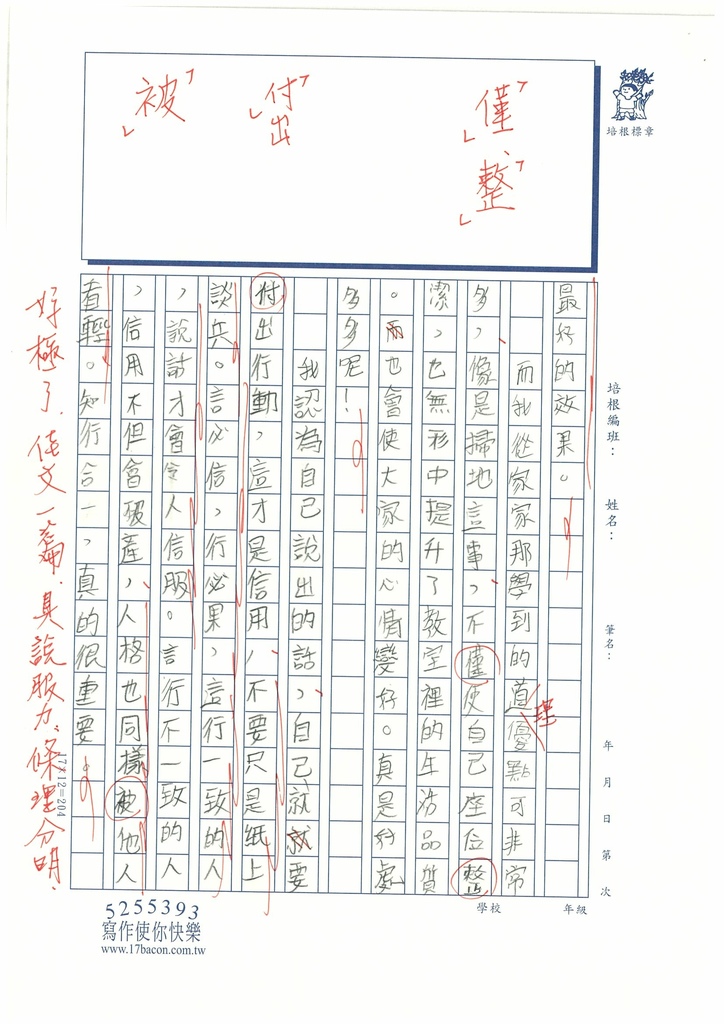 培根標章
「僅」
「整」
「付出」
「被」
培根編班：
姓名：
筆名：
年 月 日 第 次
學校 年級
最好的效果。
而我從家家那學到的道優點可非常
理
多，像是掃地這事，不僅使自己座位整
潔，也無形中提升了教室裡的生活品質
。而也會使大家的心情變好。真是好處
多多呢！
我認為自己說出的話，自己就就要
付出行動，這才是信用，不要只是紙上
談兵。言必信，行必果，這行一致的人
，說話才會令人信服。言行不一致的人
，信用不但會破產，人格也同樣被他人
看輕。知行合一，真的很重要
17*12=204
好極了，佳文一篇，具說服力、條理分明。
5255393
寫作使你快樂
www.17bacon.com.tw